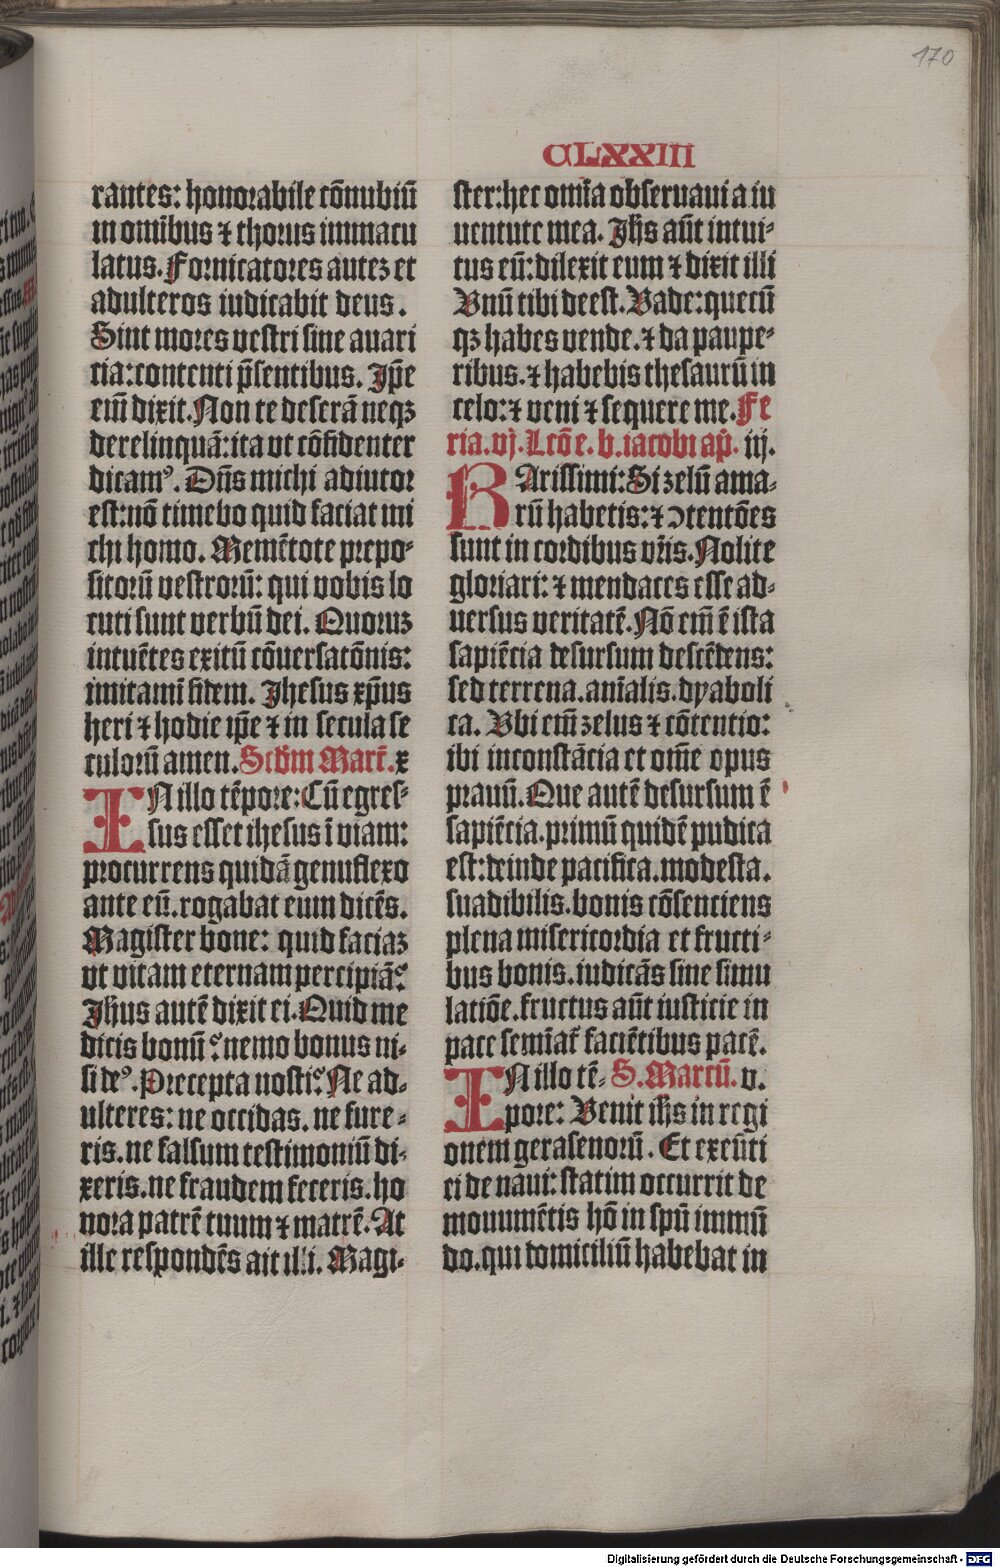 170
CLXXIII
rantes: honorabile cõnubiũ
in omĩbus ⁊ thorus immacu
latus. Fornicatores autez et
adulteros iudicabit deus.
Sint mores vestri sine auari
cia: contenti p̃sentibus. Ip̃e
eim̃ dixit. Non te deserã neqz
derelinquã: ita vt cõfidenter
dicamꝰ. Dñs michi adiutor
est: nõ timebo quid faciat mi
chi homo. Memẽtote prepo-
sitorũ vestrorũ: qui vobis lo
cuti sunt verbũ dei. Quoruz
intuẽtes exitũ cõuersatõnis:
imitamĩ fidem. Jhesus xp̃us
heri ⁊ hodie ip̃e ⁊ in secula se
culorũ amen. Scd̃m Marc̃. x
IN illo tẽpore: Cũ egres-
sus esset ihesus ĩ viam:
procurrens quidã genuflexo
ante eũ. rogabat eum dicẽs.
Magister bone: quid faciaz
vt vitam eternam percipiã?
Jhus autẽ dixit ei. Quid me
dicis bonũ? nemo bonus ni-
si deꝰ. Precepta nosti? Ne ad-
ulteres: ne occidas. ne fure-
ris. ne falsum testimoniũ di-
xeris. ne fraudem feceris. ho
nora patrẽ tuum ⁊ matrẽ. At
ille respondẽs ait illi. Magi-
ster: hec omĩa obseruaui a iu
uentute mea. Jhs aũt intui-
tus eũ: dilexit eum ⁊ dixit illi
Vnũ tibi deest. Vade: quecũ
qz habes vende. ⁊ da paupe-
ribus. ⁊ habebis thesaurũ in
celo: ⁊ veni ⁊ sequere me. Fe
ria. vj. Lcõ e. b. iacobi ap̃. iij.
KArissimi: Si zelũ ama-
rũ habetis: ⁊ ↄtentões
sunt in cordibus vr̃is. Nolite
gloriari: ⁊ mendaces esse ad-
uersus veritatẽ. Nõ em̃ ẽ ista
sapiẽcia desursum descẽdens:
sed terrena. anĩalis. dyaboli
ca. Vbi em̃ zelus ⁊ cõtentio:
ibi inconstãcia et om̃e opus
prauũ. Que autẽ desursum ẽ
sapiẽcia. primũ quidẽ pudica
est: deinde pacifica. modesta.
suadibilis. bonis cõsenciens
plena misericordia et fructi-
bus bonis. iudicãs sine simu
latiõe. fructus aũt iusticie in
pace semĩat᷑ faciẽtibus pacẽ.
IN illo tẽ- S. Marcũ. v.
pore: Venit ih̃s in regi
onem gerasenorũ. Et exeũti
ei de naui: statim occurrit de
monumẽtis hõ in spũ immũ
do. qui domiciliũ habebat in
Digitalisierung gefördert durch die Deutsche Forschungsgemeinschaft - DFG